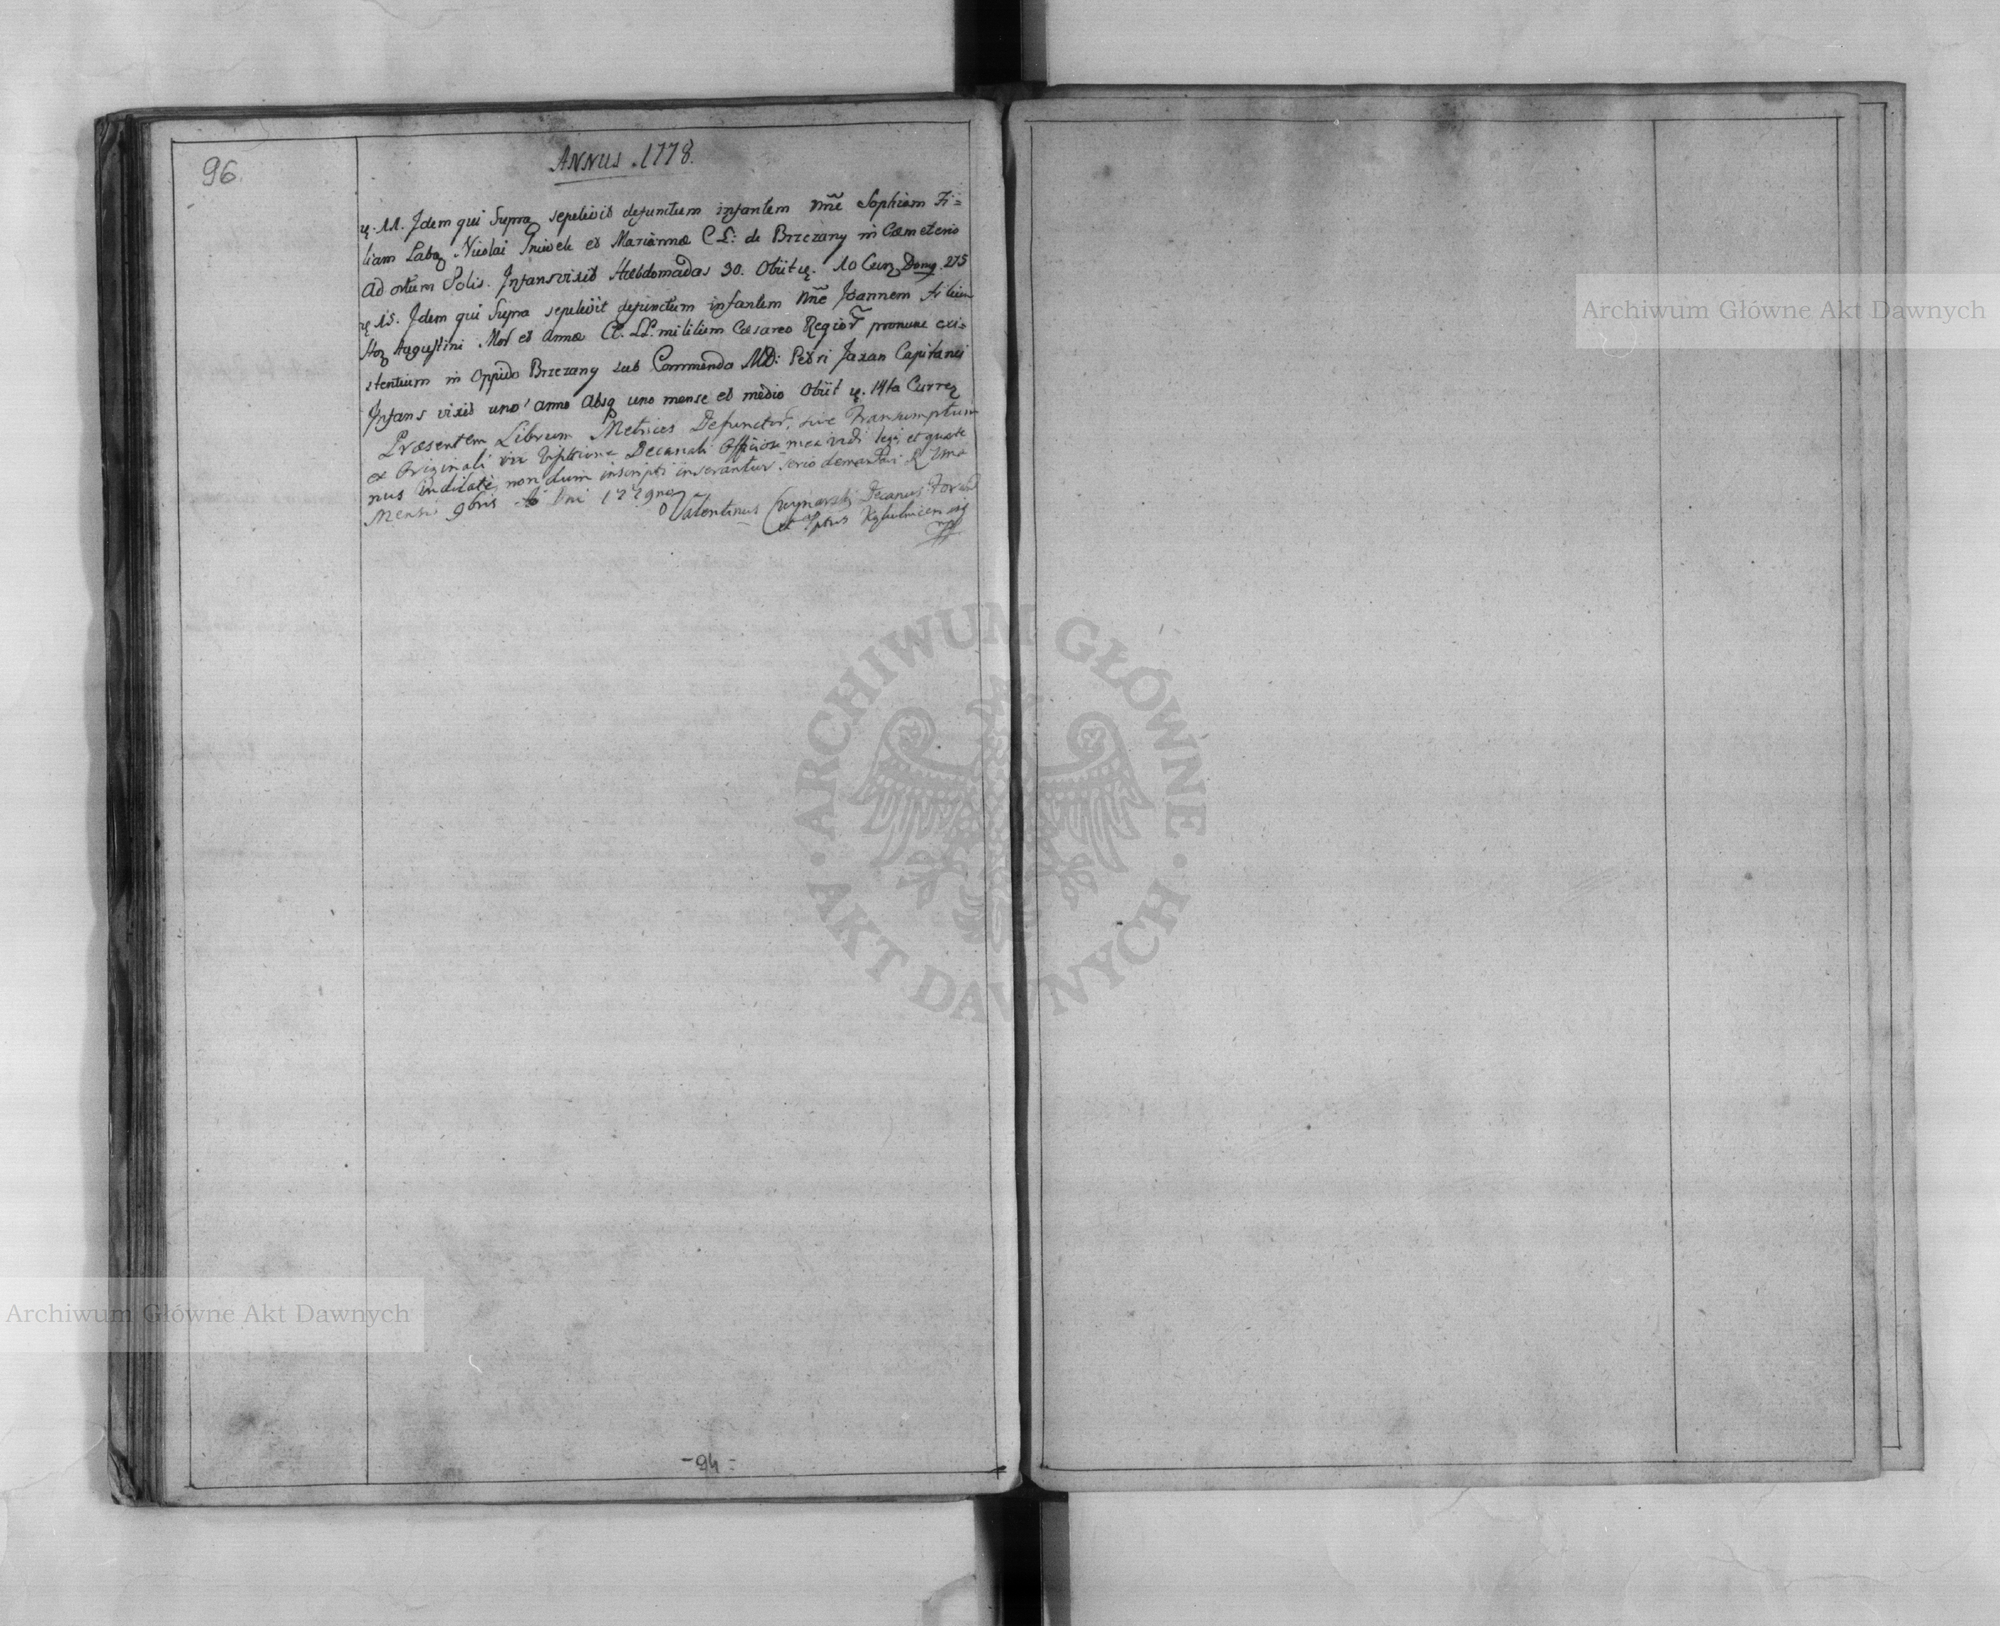 96.
ANNUS . 1778.
11. Idem qui Supra sepelivit defunctum infantem nne Sophiam Fi=
liam Lab Nicolai et Mariannæ C L: de Brzezany in Cæmeterio
ad ortum Solis. Infans vixit Hebdomadas 30. Obiit 10 Curr Domq 275
15. Idem qui Supra sepelivit defunctum infantem nne Joannem filium
Hon Augustini Mol et Annæ CC. LL. militum Cæsareo Regior pronunc exi=
stentium in Oppido Brzezany sub Commenda MD: Petri Jaxan Capitanei
Infans vixit uno anno absq uno mense et medio Obiit 14ta Curren
Præsentem Librum Metrices Defunctor, sive Transumptum
ex Originali in Decanali Officiose mea vidi legi, et quate
nus non dum inscripti inserantur serio demandavi
Mensis 9bris Dni 1779no
Valentinus Decanus
et
-94=
Archiwum Główne Akt Dawnych
Archiwum Główne Akt Dawnych
ARCHIWUM GŁÓWNE · AKT DAWNYCH ·